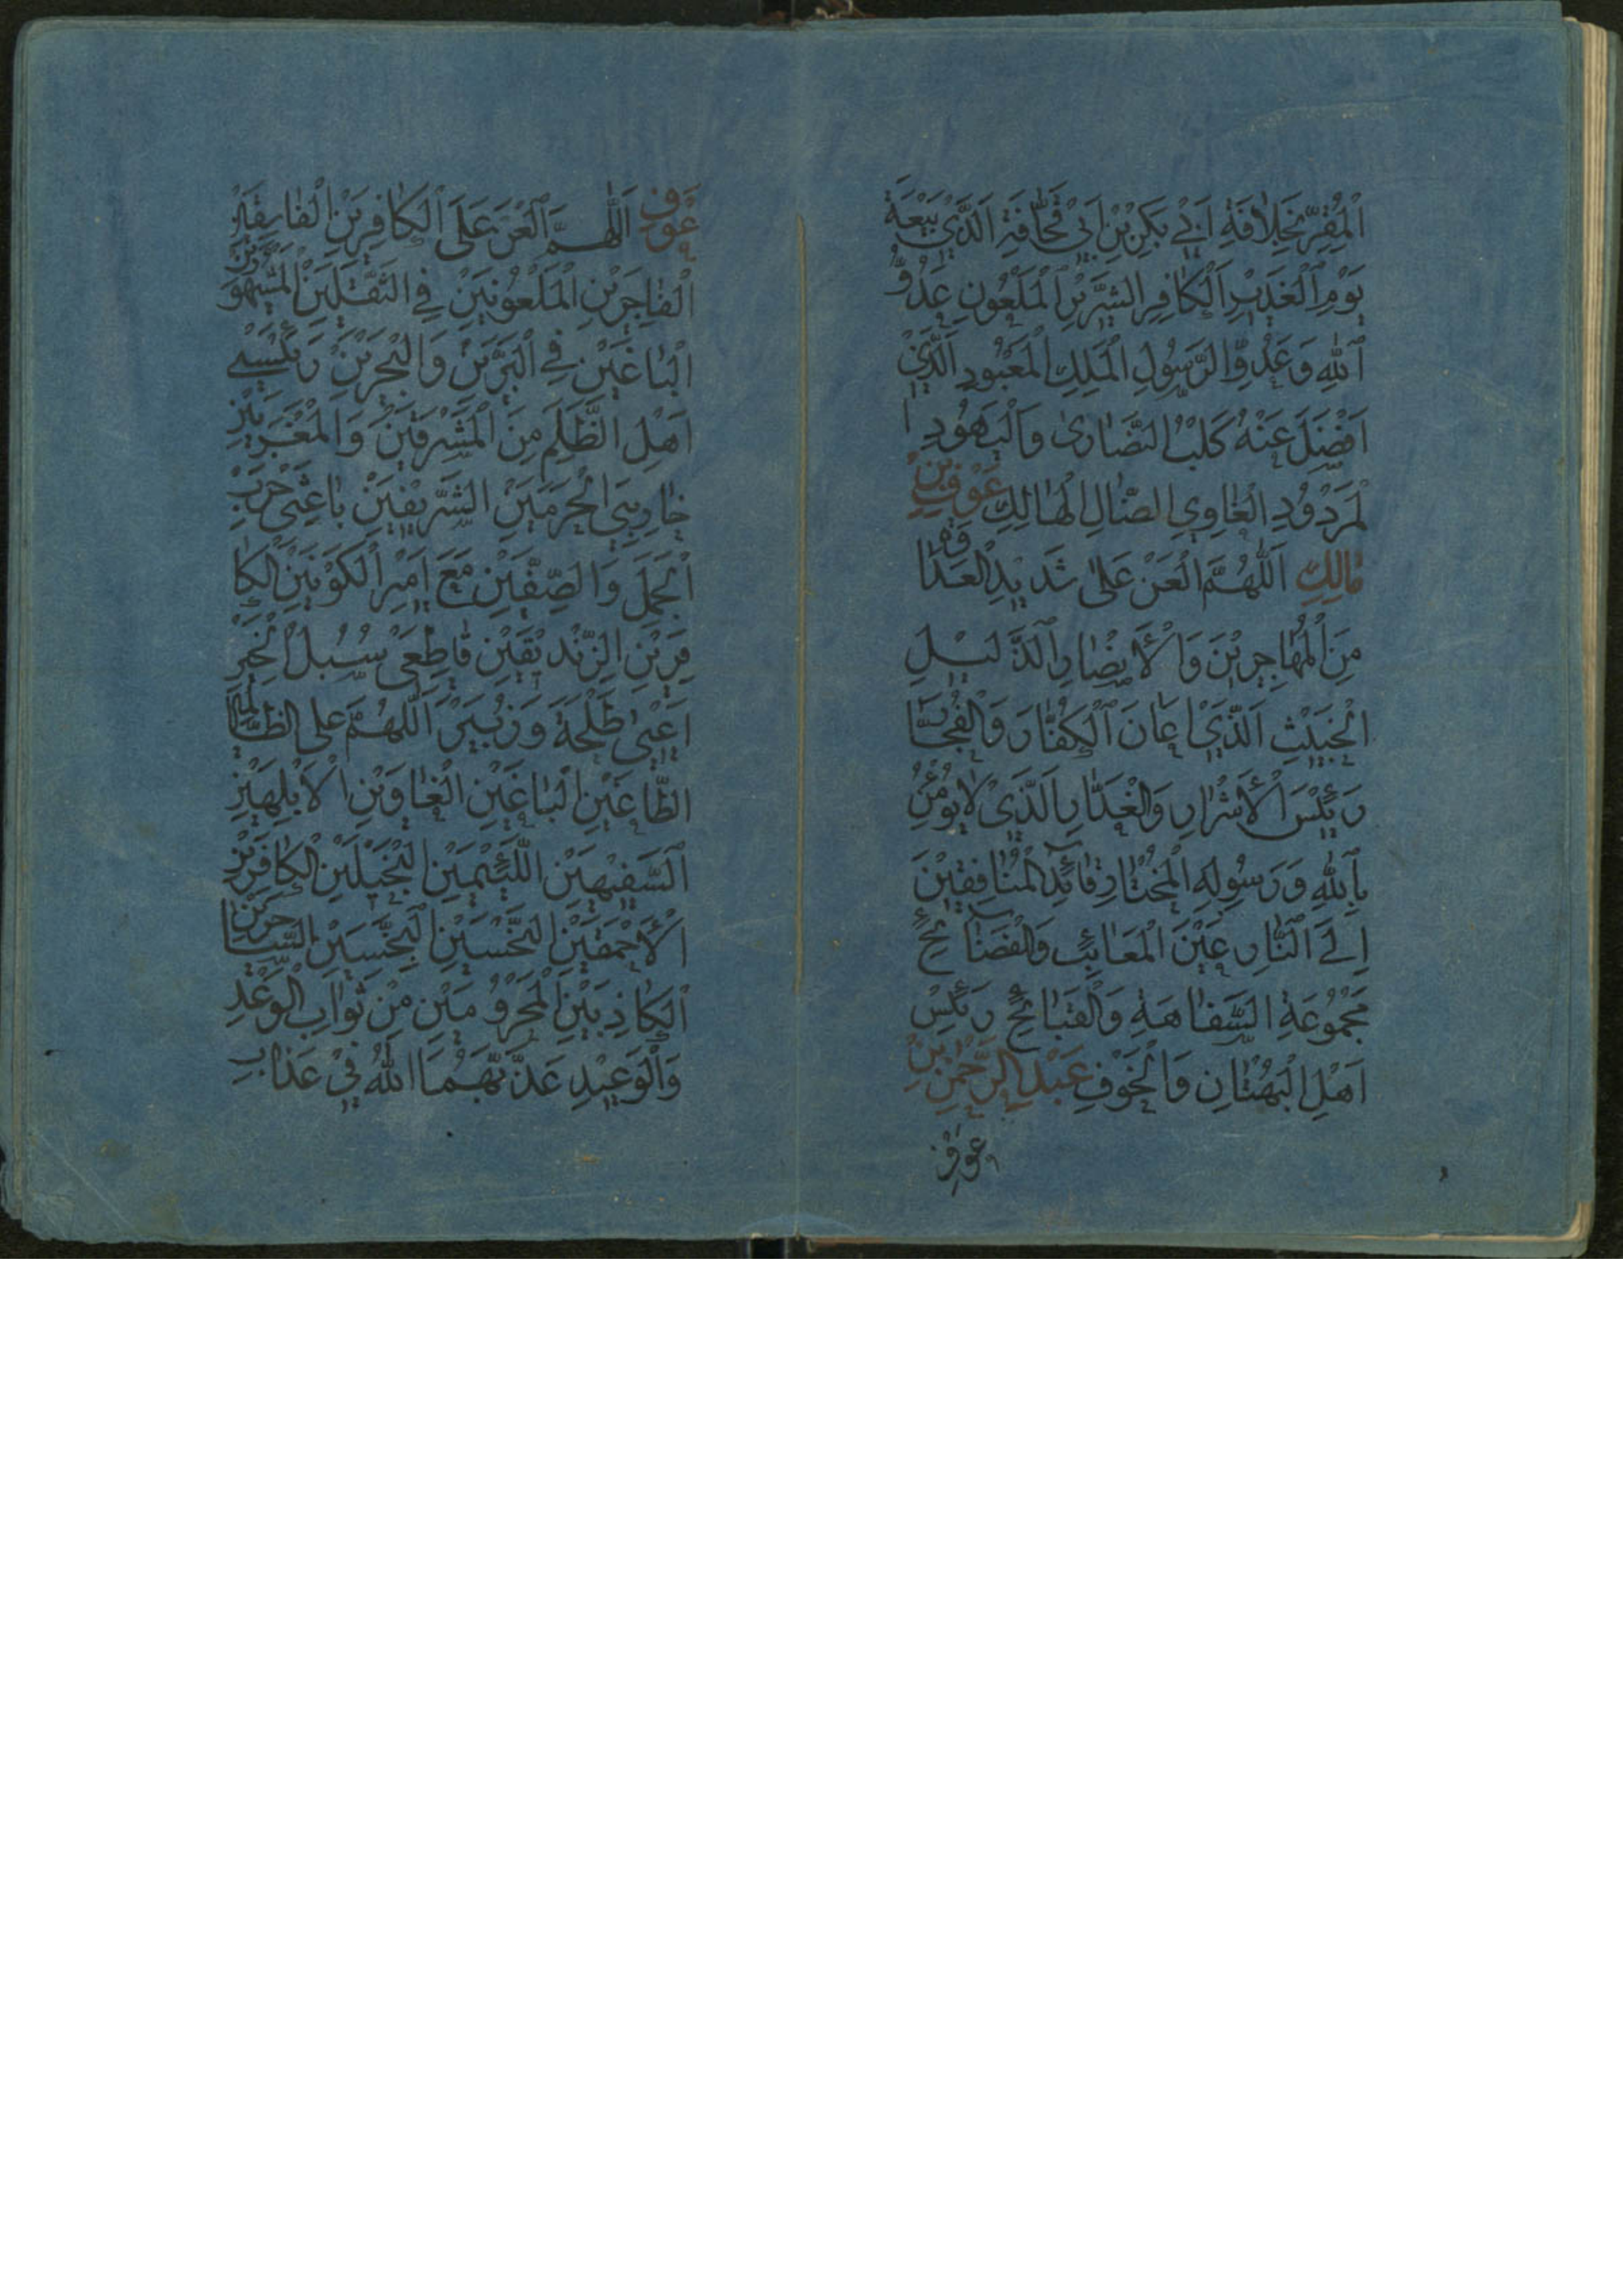 الْمُقِرِّ بِخِلَافَةِ اَبِي بَكْرِ بْنِ اَبِي قُحَافَةِ اَلَّذِي بَيْعَةَ
يَوْمِ الْغَدِيرِ اَلْكَافِرِ الشِّرِّيرِ الْمَلْعُونِ عَدُوِّ
اللّٰهِ وَعَدُوِّ الرَّسُولِ الْمَلِكِ الْمَعْبُودِ الَّذِي
اَفْضَلَ عَنْهُ كَلْبُ النَّصَارىٰ وَالْيَهُودِ ا
لْمَرْدُودِ الْغَاوِي الضَّالِ الْهَالِكِ عَوْفِ بْنِ
مَالِكِ اَللّٰهُمَّ الْعَنْ عَلىٰ شَدِيدِ الْعَدَاوَةِ
مِنَ الْمُهَاجِرِينَ وَالْأَنْصَارِ الذَّلِيلِ
الْخَبِيثِ الَّذِي اَعَانَ الْكُفَّارَ وَالْفُجَّارَ
رَئِيسَ الْأَشْرَارِ وَالْغَدَّارِ الَّذِي لَا يُؤْمِنُ
بِاللّٰهِ وَرَسُولِهِ الْمُخْتَارِ قَائِدِ الْمُنَافِقِينَ
اِلَى النَّارِ عَيْنَ الْمَعَائِبِ وَالْفَضَائِحِ
مَجْمُوعَةِ السَّفَاهَةِ وَالْقَبَائِحِ رَئِيسُ
اَهْلِ الْبُهْتَانِ وَالْخَوْفِ عَبْدِ الرَّحْمٰنِ بْنِ
عوف
عَوْفٍ اَللّٰهُمَّ الْعَنْ عَلَى الْكَافِرَيْنِ الْفَاسِقَيْنِ
الْفَاجِرَيْنِ الْمَلْعُونَيْنِ فِي الثَّقَلَيْنِ الْمَشْهُورَيْنِ
الْبَاغِيَيْنِ فِي الْبَرَّيْنِ وَالْبَحْرَيْنِ رَئِيسَيْ
اَهْلِ الظُّلْمِ مِنَ الْمَشْرِقَيْنِ وَالْمَغْرِبَيْنِ
خَارِجَيِ الْحَرَمَيْنِ الشَّرِيفَيْنِ بَاعِثَيْ حَرْبِ
الْجَمَلِ وَالصِّفِّينِ مَعَ اَمِيرِ الْكَوْنَيْنِ الْكَا
فِرَيْنِ الزِّنْدِيقَيْنِ قَاطِعَيْ سُبُلِ الْخَيْرِ
اَعْنِي طَلْحَةَ وَزُبَيْرَ اَللّٰهُمَّ على الظَّالِمَيْنِ
الطَّاغِيَيْنِ الْبَاغِيَيْنِ الْغَاوِيَيْنِ الْاَبْلَهَيْنِ
السَّفِيهَيْنِ اللَّئِيمَيْنِ الْبَخِيلَيْنِ الْكَافِرَيْنِ
الْأَحْمَقَيْنِ النَّحْسَيْنِ النَّجِسَيْنِ السَّاحِرَيْنِ
الْكَاذِبَيْنِ الْمَحْرُومَيْنِ مِنْ ثَوَابِ الْوَعْدِ
وَالْوَعِيدِ عَذَّبَهُمَا اللّٰهُ فِي عَذَابٍ